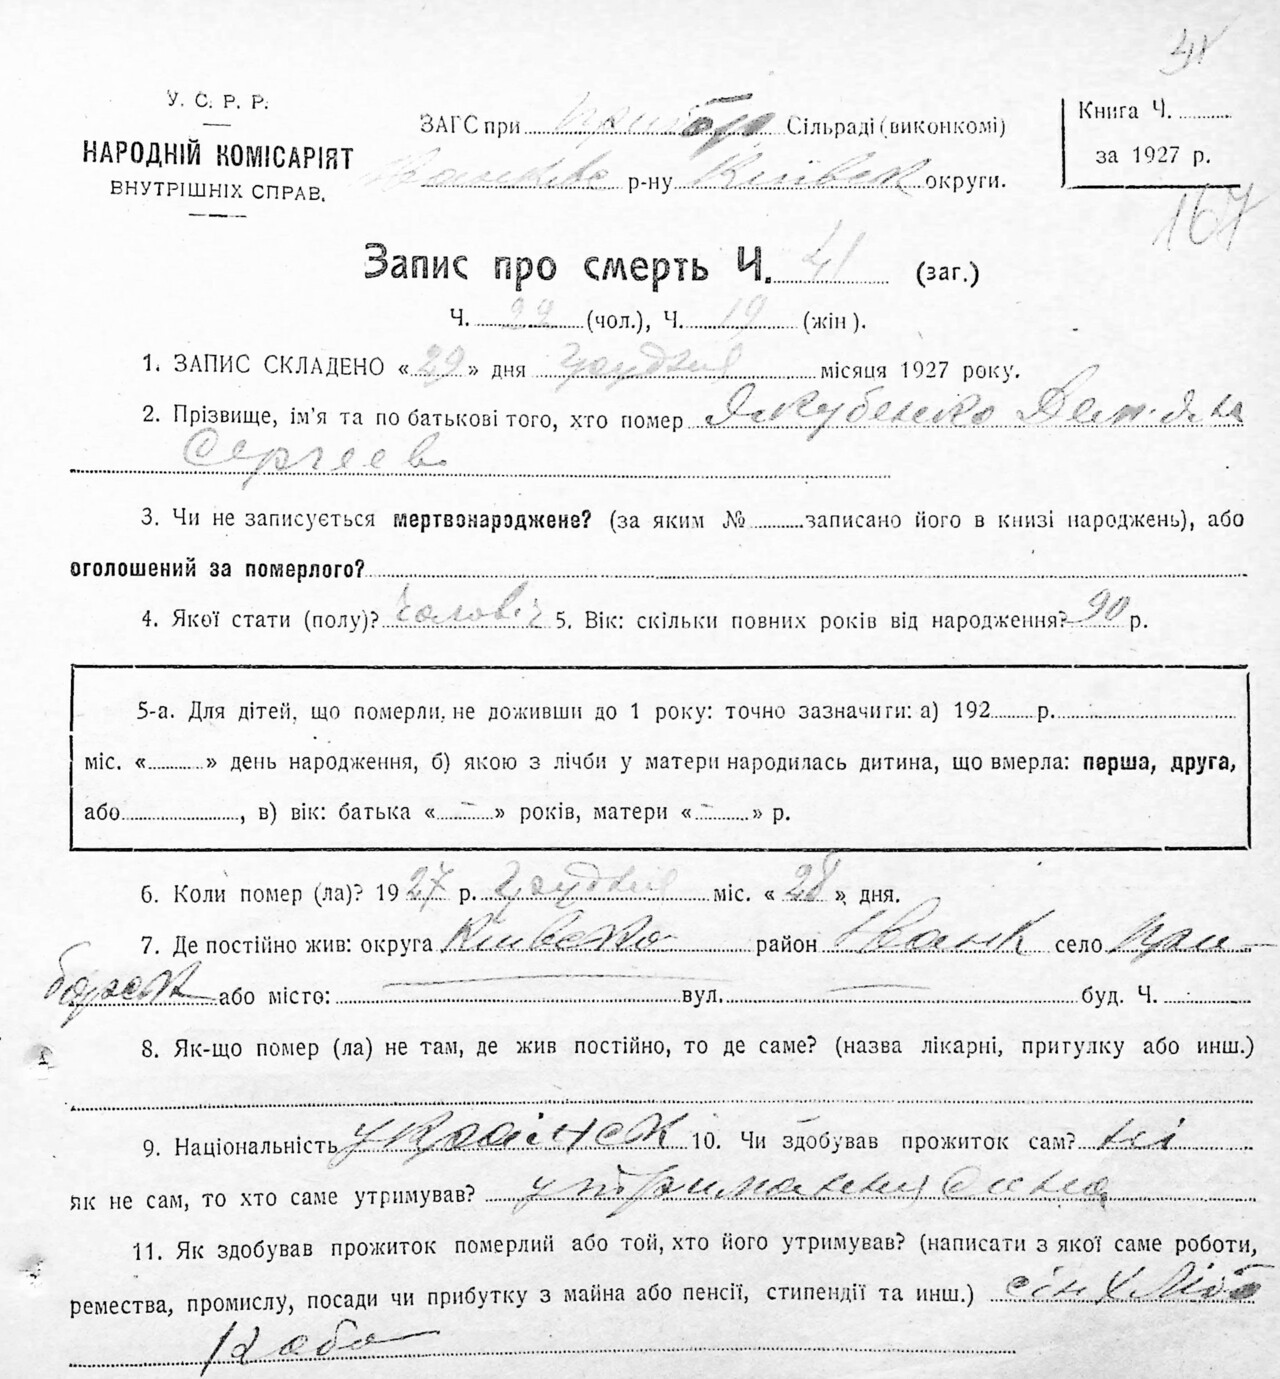 41
У. С. Р. Р.
НАРОДНІЙ КОМІСАРІЯТ
ВНУТРІШНІХ СПРАВ.
ЗАГС при Прибор Сільраді (виконкомі)
Іванківс р-ну Київськ округи.
Книга Ч.
за 1927 р.
167
Запис про смерть Ч. 41 (заг.)
Ч. 22 (чол.), Ч. 19 (жін).
1. ЗАПИС СКЛАДЕНО «29» дня Грудня місяця 1927 року.
2. Прізвище, ім'я та по батькові того, хто помер Якубенко Дем'яна
Сергеев
3. Чи не записується мертвонароджене? (за яким № записано його в книзі народжень), або
оголошений за померлого?
4. Якої стати (полу)? чолович 5. Вік: скільки повних років від народження? 90 р.
5-а. Для дітей, що померли, не доживши до 1 року: точно зазначити: а) 192 р.
міс. « » день народження, б) якою з лічби у матери народилась дитина, що вмерла: перша, друга,
або , в) вік: батька « – » років, матери « – » р.
6. Коли помер (ла)? 1927 р. Грудня міс. «28» дня.
7. Де постійно жив: округа Київсько район Іванк село При-
борськ або місто: вул. буд. Ч.
8. Як-що помер (ла) не там, де жив постійно, то де саме? (назва лікарні, пригулку або инш.)
9. Національність українськ 10. Чи здобував прожиток сам? ні
як не сам, то хто саме утримував? утримання сина
11. Як здобував прожиток померлий або той, хто його утримував? (написати з якої саме роботи,
ремества, промислу, посади чи прибутку з майна або пенсії, стипендії та инш.) сін хлібо
роба